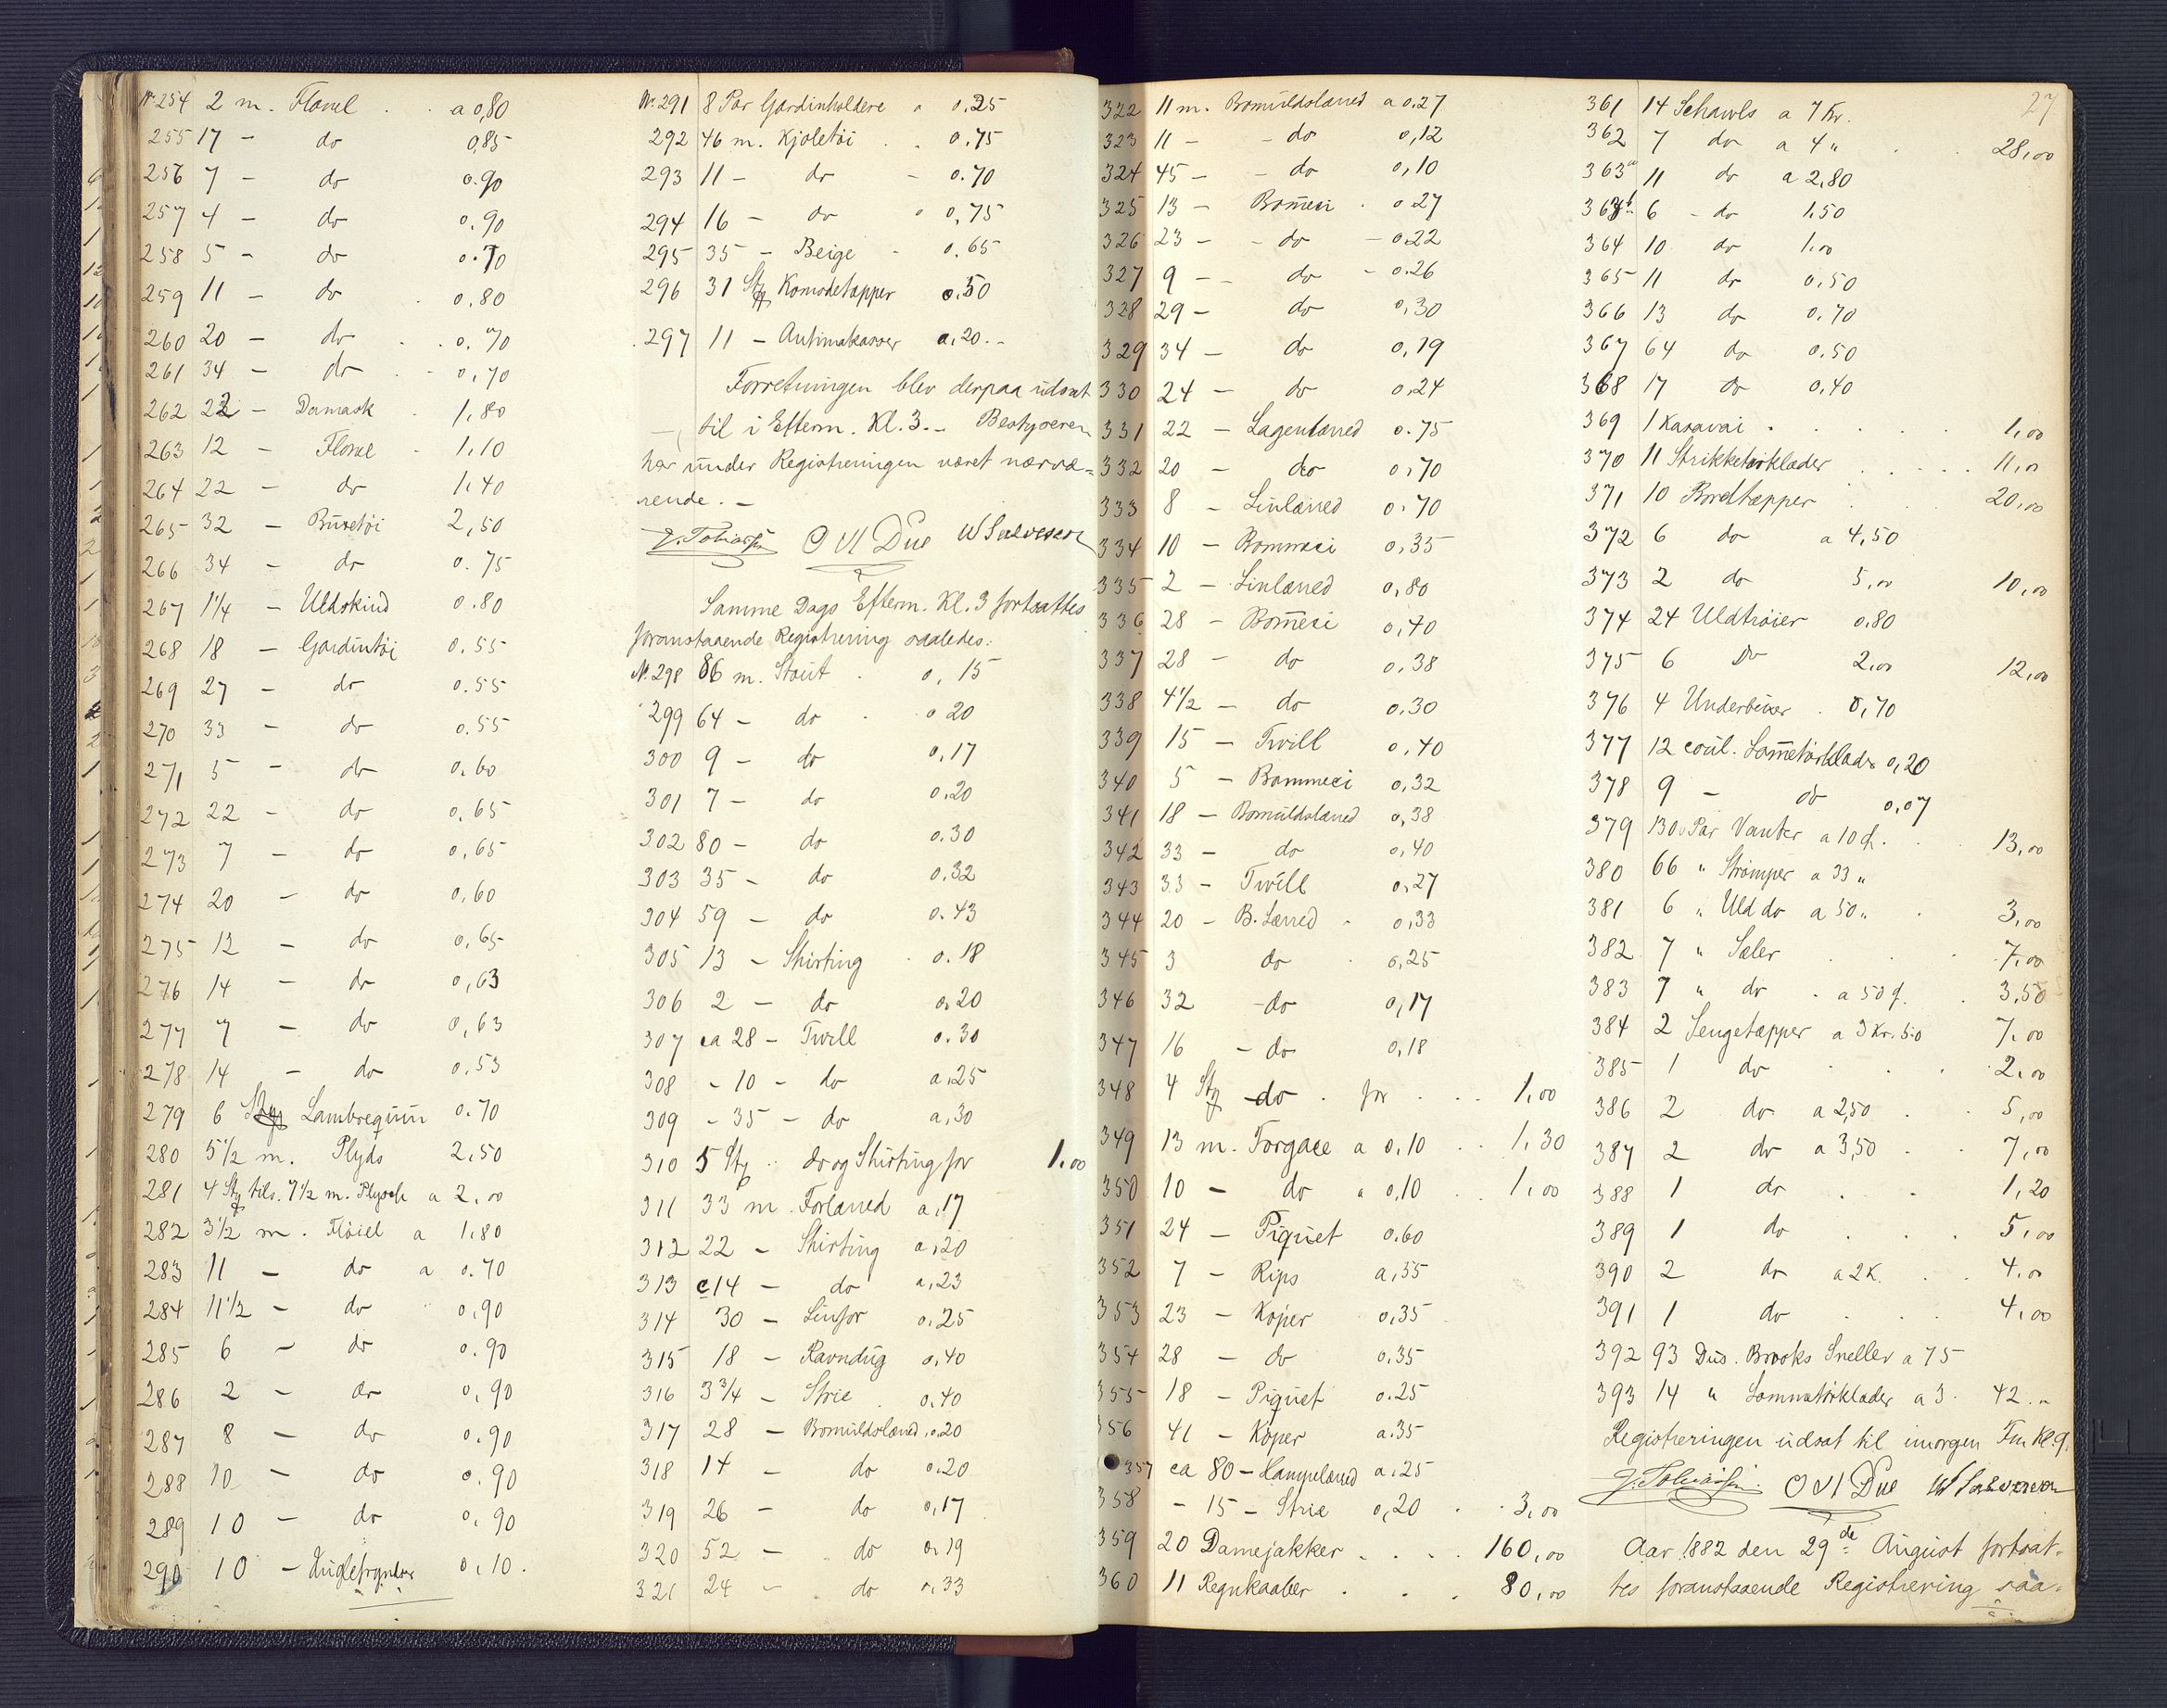 Nr. 254 2 m. Flanel . . a 0,80
255 17 - do 0,85
256 7 - do 0.90
257 4 - do 0,90
258 5 - do 0.70
259 11 - do . 0,80
260 20 - do . . 0.70
261 34 - do . - 0,70
262 22 - Damask . 1,80
263 12 - Flanel . 1,10
264 22 - do 1,40
265 32 - Buxetøi 2,50
266 34 - do 0.75
267 1 1/4 - Uldskind 0.80
268 18 - Gardintøi 0.55
269 27 - do 0.55
270 33 - do 0.55
271 5 - do 0.60
272 22 - do 0,65
273 7 - do 0,65
274 20 - do 0,60
275 12 - do 0,65
276 14 - do 0,63
277 7 - do 0,63
278 14 - do 0,53
279 6 Stkr Lambrequin 0.70
280 5 1/2 m. Plyds 2,50
281 4 Stkr tils. 7 1/2 m. Plysch a 2,00
282 3 1/2 m. Fløiel a 1,80
283 11 - do a 0.70
284 11 1/2 - do 0,90
285 6 - do 0.90
286 2 - do 0,90
287 8 - do 0.90
288 10 - do 0.90
289 10 - do 0,90
290 10 - 0,10.
Nr. 291 8 Par Gardinholdere a 0,25
292 46 m. Kjoletøi . . 0.75
293 11 - do - 0.70
294 16 - do 0,75
295 35 - Beige - 0.65
296 31 Stkr Komodetæpper 0.50
297 11 - Antimakasser a,20.-
Forretningen blev derpaa udsat
til i Efterm. Kl. 3. - Bestyreren
har under Registreringen været nærvæ=
rende. -
J. Tobiassen O M Due W Salvesen
Samme Dags Efterm. Kl. 3 fortsattes
foranstaaende Registrering saaledes:
Nr. 298 86 m. Stout . 0,15
299 64 - do . 0 20
300 9 - do 0,17
301 7 - do 0.20
302 80 - do 0.30
303 35 - do 0.32
304 59 - do 0.43
305 13 - Shirting . 0.18
306 2 - do 0.20
307 ca 28 - Twill 0.30
308 - 10 - do a,25
309 - 35 - do a,30
310 5 Stkr do og Shirting for 1.00
311 33 m. Forlærred a,17
312 22 - Shirting a,20
313 c14 - do a,23
314 30 - Linfor 0.25
315 18 - Ravndug 0,40
316 3 3/4 - Strie . 0.40
317 28 - Bomuldslærred 0.20
318 14 - do 0.20
319 26 - do 0,17
320 52 - do 0,19
321 24 - do 0.33
322 11 m. Bomuldslærred a 0.27
323 11 - - do 0,12
324 45 - - do 0,10
325 13 - Bomesi . 0.27
326 23 - - do - 0.22
327 9 - do - 0.26
328 29 - do 0,30
329 34 - do 0,19
330 24 - do 0.24
331 22 - Lagenlærred 0.75
332 20 - do 0,70
333 8 - Linlærred 0.70
334 10 - Bommesi 0,35
335 2 - Linlærred 0,80
336 28 - Bomesi 0,40
337 28 - do 0,38
338 4 1/2 - do 0.30
339 15 - Twill 0,40
340 5 - Bommesi 0,32
341 18 - Bomuldslærred 0,38
342 33 - do 0,40
343 33 - Twill 0,27
344 20 - B. Lærred - 0,33
345 3 do . 0,25
346 32 - do 0,17
347 16 - do 0,18
348 4 Stkr - do . for . . . 1,00
349 13 m. Forgace a 0,10 . . 1,30
350 10 - do " 0,10 . . 1,00
351 24 - Piquet 0.60
352 7 - Rips a,35
353 23 - Køper 0,35
354 28 - do 0.35
355 18 - Piquet 0.25
356 41 - Køper a.35
357 ca 80 - Hampelærred a,25
358 - 15 - Strie 0,20 . . 3,00
359 20 Damejakker . . . . 160,00
360 11 Regnkaaber . . . 80,00
27
361 14 Schawls a 7 Kr.
362 7 do a 4 " . . 28,00
363a 11 do a 2,80
363b 6 - do 1.50
364 10 do 1,00
365 11 do 0,50
366 13 do 0,70
367 64 do 0.50
368 17 do 0,40
369 1 Karavai . . . . . 1,00
370 11 Strikketørklæder . . . . . 11,00
371 10 Bordtæpper . . . 20,00
372 6 do a 4,50
373 2 do 5,00 10,00
374 24 Uldtrøier 0.80
375 6 Do 2,00 12,00
376 4 Underbuxer . 0,70
377 12 coul. Lometørklæder 0,20
378 9 - do 0,07
379 130 Par Vanter a 10 ø. . . 13,00
380 66 " Strømper a 33 "
381 6 " Uld do a 50 " . 3,00
382 7 " Seler . . . 7,00
383 7 " do . a 50 ø. . 3,50
384 2 Sengetæpper a 3 Kr. 50 7,00
385 1 do . . . 2,00
386 2 do a 2,50 . . 5,00
387 2 do a 3,50 . . 7,00
388 1 do . . 1,20
389 1 do . . . 5,00
390 2 do a 2 K. . . 4,00
391 1 do . . . 4,00
392 93 Dus. Brooks Sneller a 75
393 14 " Lommetørklæder a 3. 42.-
Registreringen udsat til imorgen Fm Kl. 9.
J. Tobiassen. O M Due W Salvesen
Aar 1882 den 29de August fortsat-
tes foranstaaende Registrering saa-